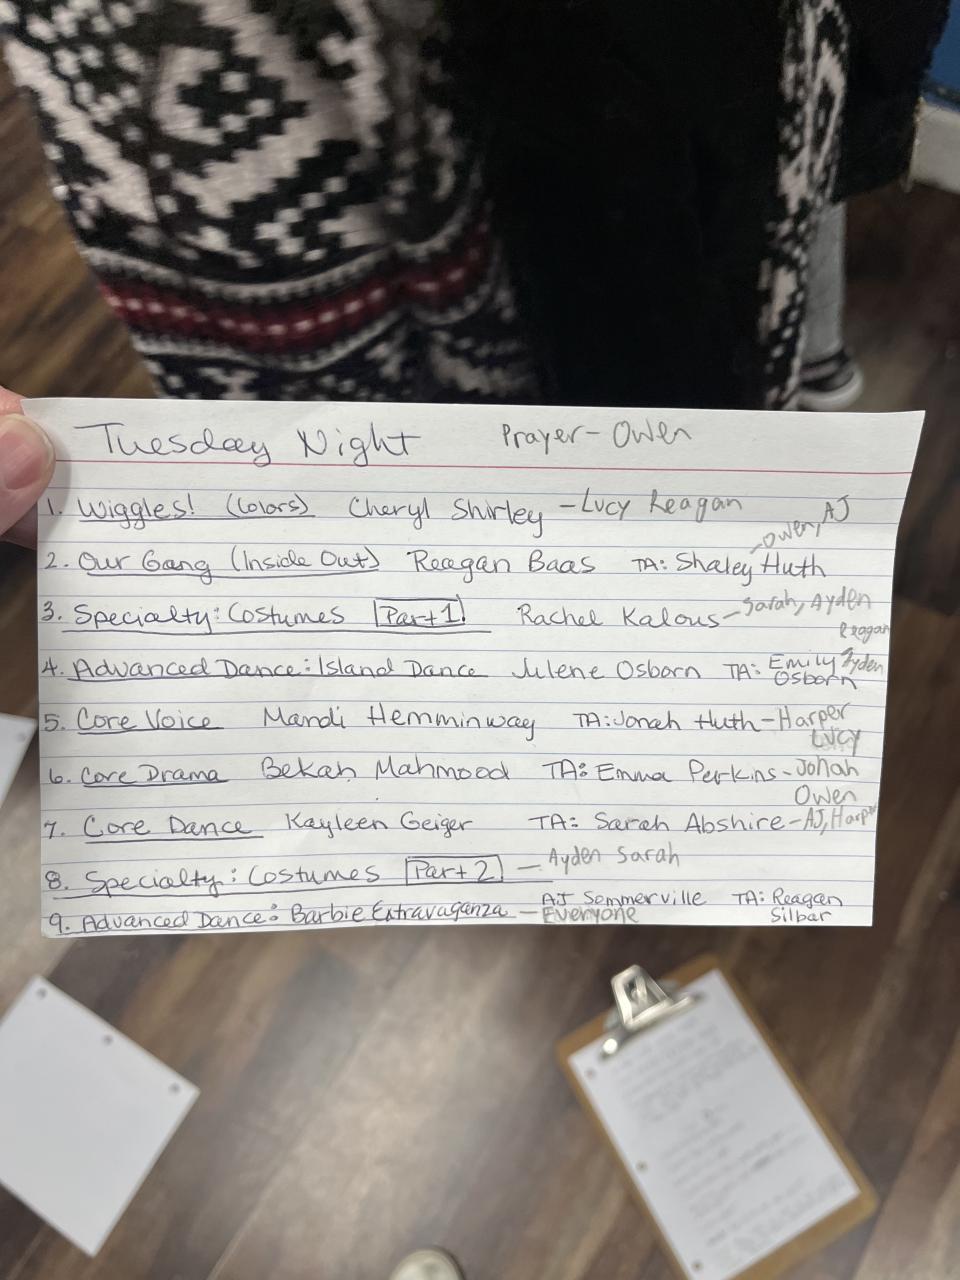 Tuesday Night Prayer - Owen
1. Wiggles! (Colors) Cheryl Shirley - Lucy Reagan
- Owen, AJ
2. Our Gang (Inside Out) Reagan Baas TA: Shaley Huth
3. Specialty: Costumes Part 1! Rachel Kalous - Sarah, Ayden
Reagan
4. Advanced Dance: Island Dance Julene Osborn TA: Emily Osborn Ayden
5. Core Voice Mandi Hemminway TA: Jonah Huth - Harper
Lucy
6. Core Drama Bekah Mahmood TA: Emma Perkins - Jonah
Owen
7. Core Dance Kayleen Geiger TA: Sarah Abshire - AJ, Harper
8. Specialty: Costumes Part 2 - Ayden Sarah
9. Advanced Dance: Barbie Extravaganza - AJ Sommerville TA: Reagan Silbar
Everyone